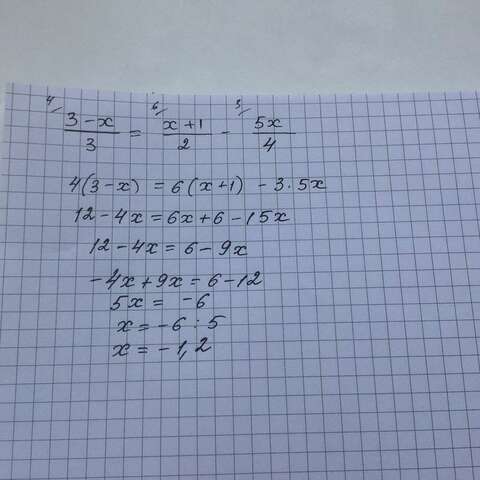 4/ 6/ 3/
(3-x)/3 = (x+1)/2 - 5x/4
4(3-x) = 6(x+1) - 3·5x
12-4x = 6x+6-15x
12-4x = 6-9x
-4x+9x = 6-12
5x = -6
x = -6:5
x = -1,2